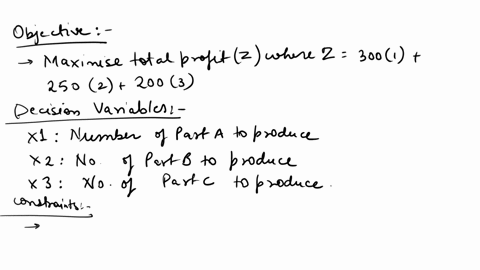 Objective:-
→ Maximise total profit (Z) where Z = 300(1) +
250 (2) + 200 (3)
Decision Variables:-
X1: Number of Part A to produce
X2: No. of Part B to produce
X3: No. of Part C to produce.
Constraints:-
→